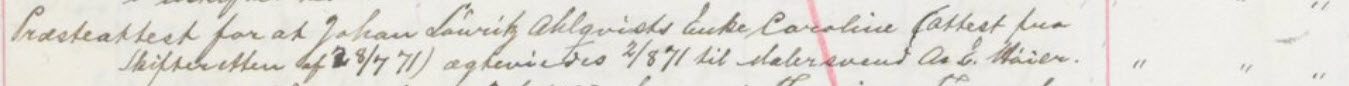 Præsteattest for at Johan Lauritz Ahlqvists Enke, Caroline (attest fra
Skifteretten af 28/7 71) ægteviedes 2/8 71 til Malersvend A. L. Høier. " " "